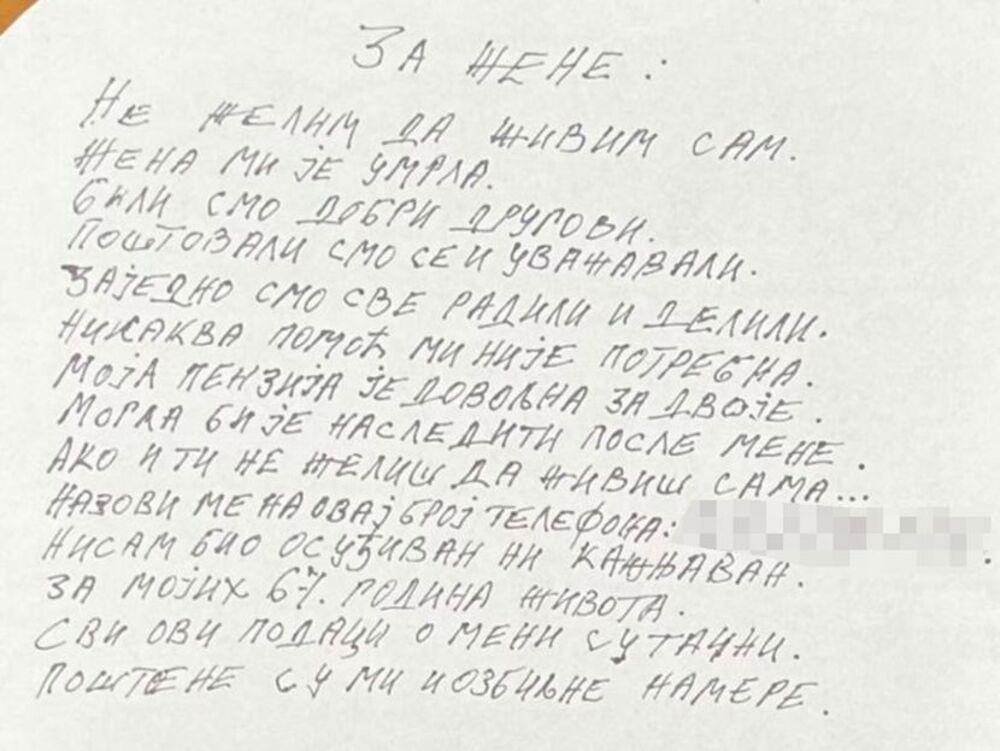 ЗА ЖЕНЕ:
НЕ ЖЕЛИМ ДА ЖИВИМ САМ.
ЖЕНА МИ ЈЕ УМРЛА.
БИЛИ СМО ДОБРИ ДРУГОВИ.
ПОШТОВАЛИ СМО СЕ И УВАЖАВАЛИ.
ЗАЈЕДНО СМО СВЕ РАДИЛИ И ДЕЛИЛИ.
НИКАКВА ПОМОЋ МИ НИЈЕ ПОТРЕБНА.
МОЈА ПЕНЗИЈА ЈЕ ДОВОЉНА ЗА ДВОЈЕ.
МОГЛА БИ ЈЕ НАСЛЕДИТИ ПОСЛЕ МЕНЕ.
АКО И ТИ НЕ ЖЕЛИШ ДА ЖИВИШ САМА...
НАЗОВИ МЕ НА ОВАЈ БРОЈ ТЕЛЕФОНА:
НИСАМ БИО ОСУЂИВАН НИ КАЖЊАВАН.
ЗА МОЈИХ 67. ГОДИНА ЖИВОТА.
СВИ ОВИ ПОДАЦИ О МЕНИ СУ ТАЧНИ.
ПОШТЕНЕ СУ МИ И ОЗБИЉНЕ НАМЕРЕ.